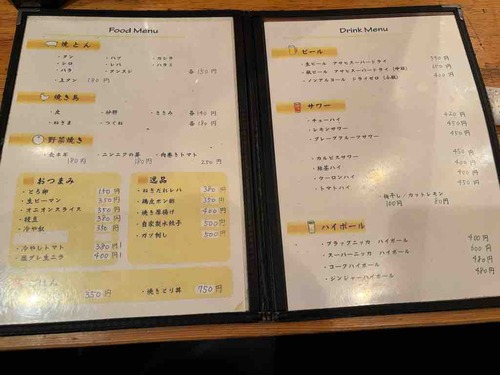 Food Menu
焼とん
・タン ・ハツ ・カシラ
・シロ ・レバ ・ハラミ
・ハラ ・ナンコツ 各150円
・上タン 180円
焼き鳥
・皮 ・砂肝 ・ささみ 各140円
・ねぎま ・つくね 各180円
野菜焼き
・長ネギ 180円 ・ニンニクの芽 180円 ・肉巻きトマト 250円
おつまみ
・とろ卵 150円
・生ピーマン 350円
・オニオンスライス 350円
・枝豆 350円
・冷や奴 350円
・冷やしトマト 380円
・塩ダレ生ニラ 400円
逸品
・ねぎだれレバ 380円
・鶏皮ポン酢 350円
・焼き厚揚げ 400円
・自家製水餃子 500円
・ガツ刺し 500円
ごはん
350円 ・焼きとり丼 750円
Drink Menu
ビール
・生ビール アサヒスーパードライ
・瓶ビール アサヒスーパードライ(中瓶)
・ノンアルコール ドライゼロ(小瓶) 400
サワー
・チューハイ 420円
・レモンサワー 450円
・グレープフルーツサワー 450円
・カルピスサワー 450円
・緑茶ハイ 400円
・ウーロンハイ 400円
・トマトハイ 450円
・梅干し/カットレモン
100円 80円
ハイボール
・ブラックニッカ ハイボール 400円
・スーパーニッカ ハイボール 600円
・コークハイボール 480円
・ジンジャーハイボール 480円